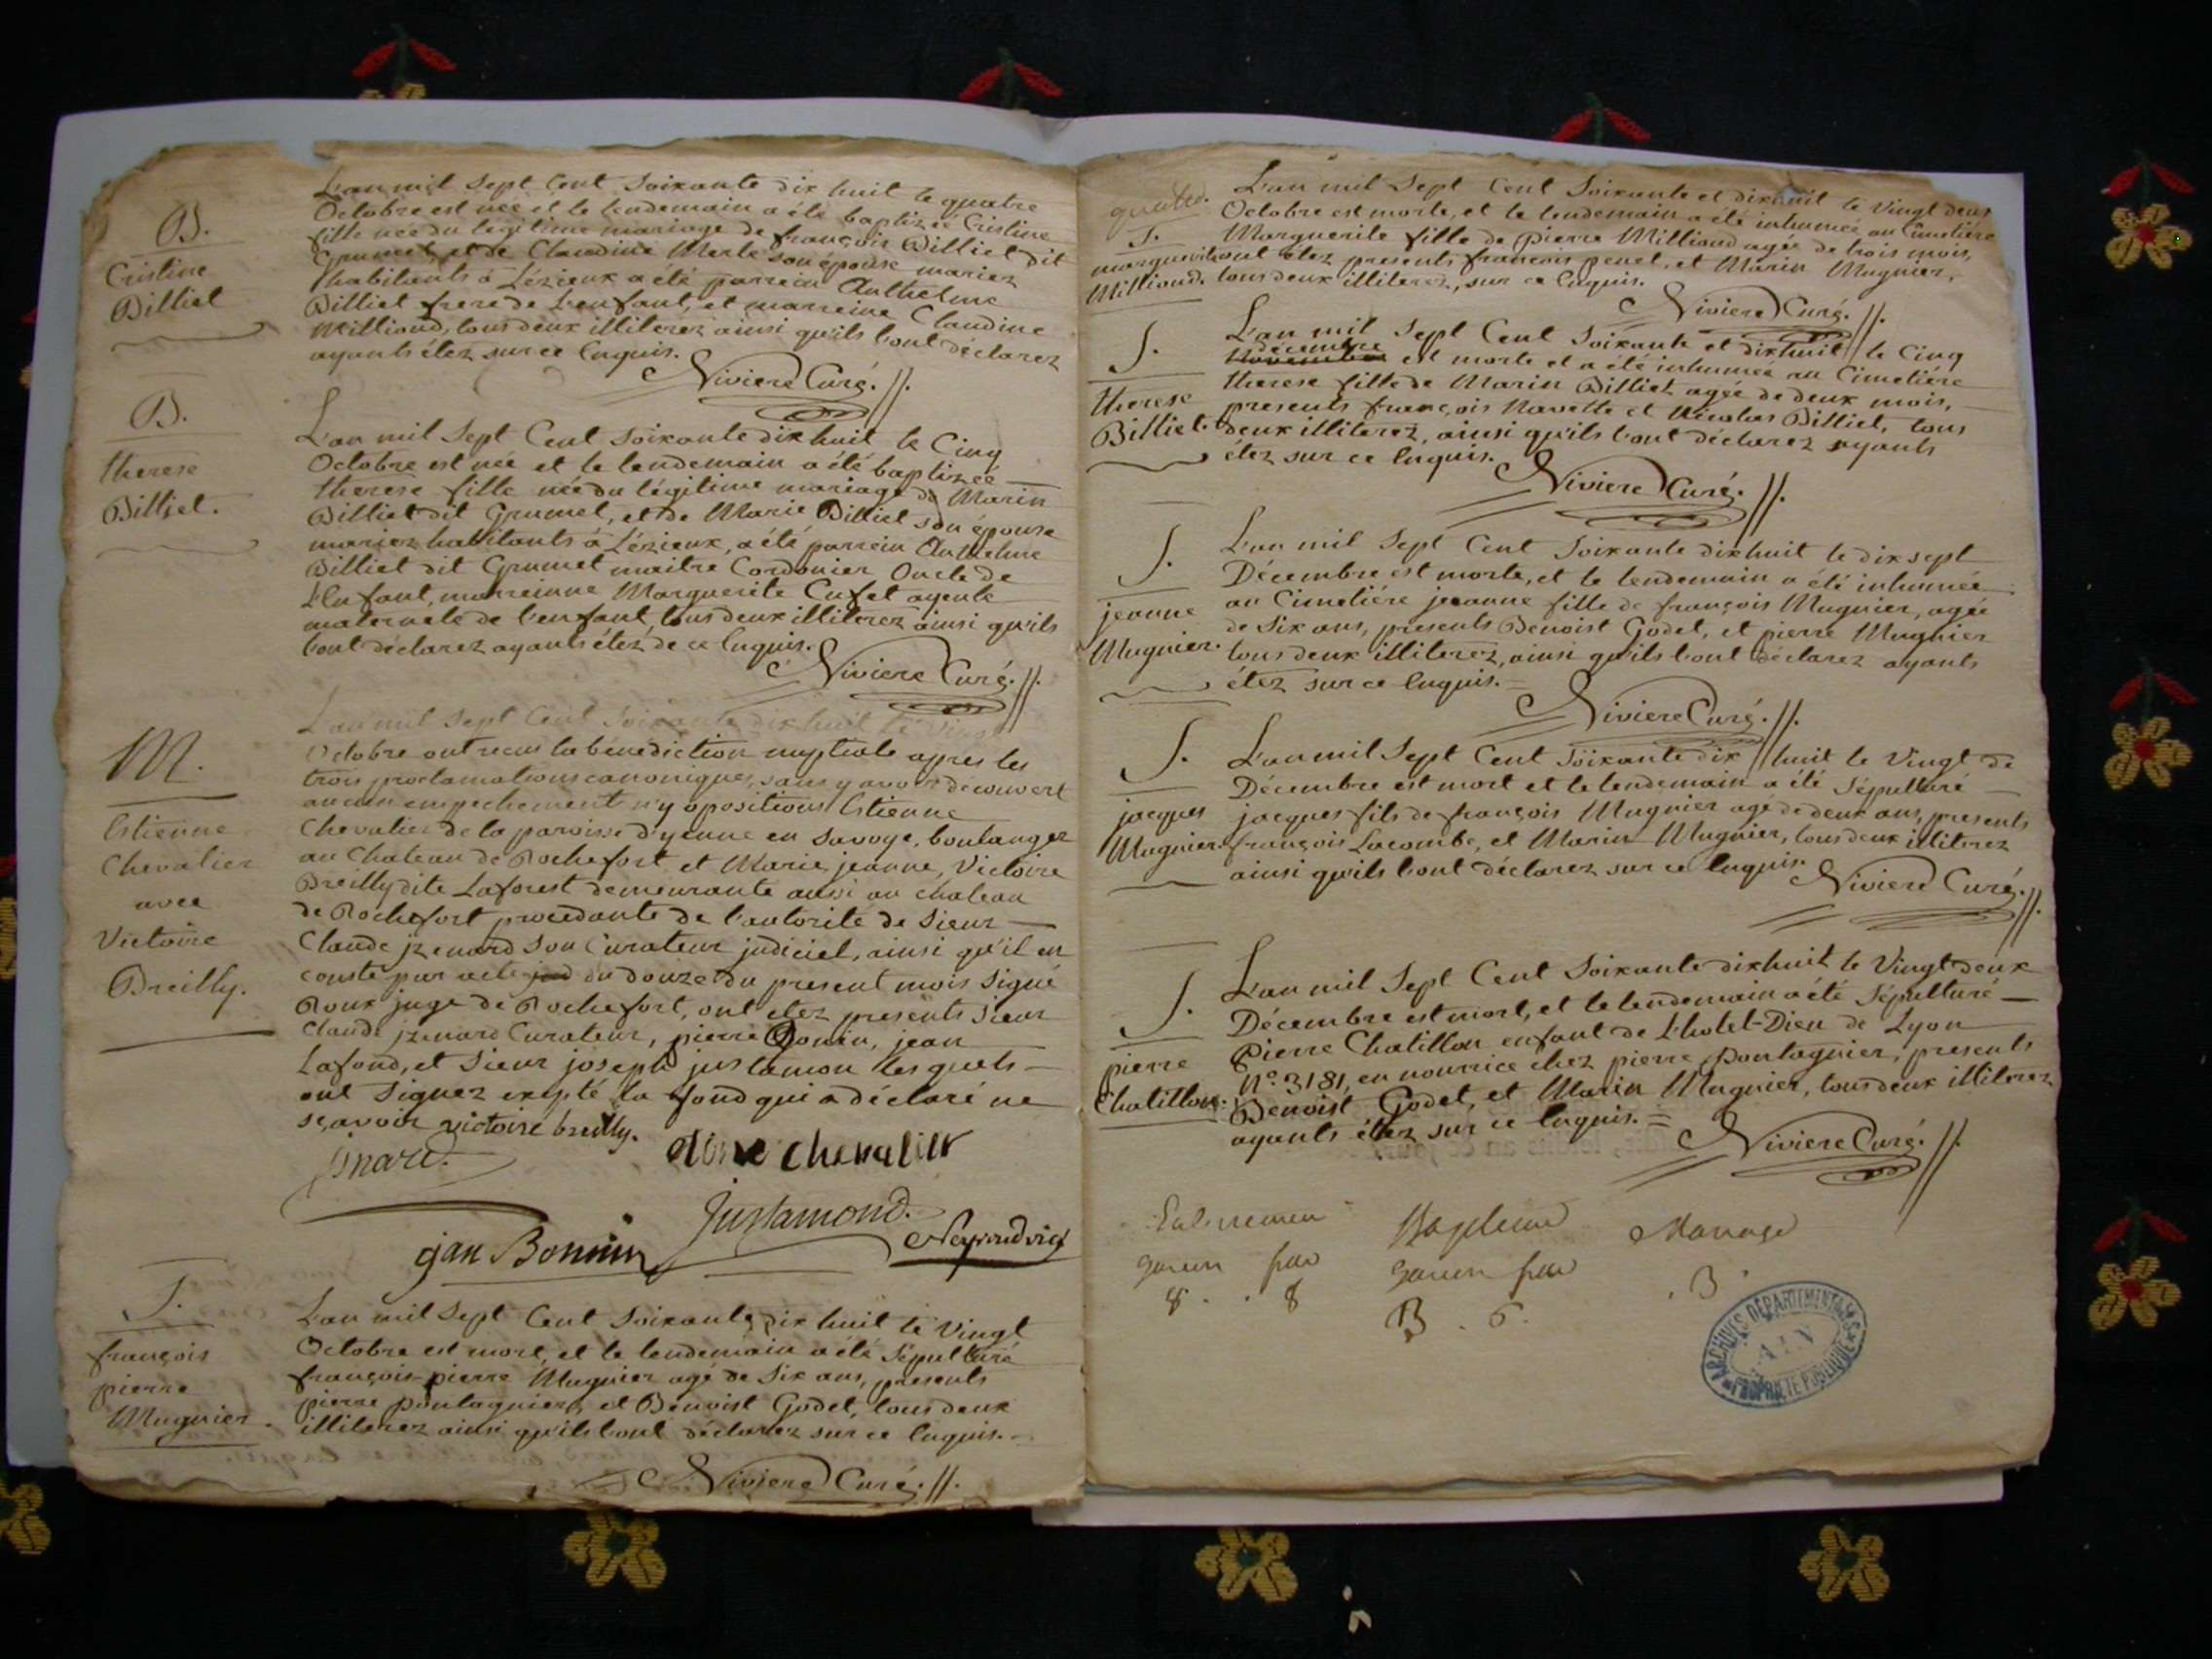 B.
Cristine
Billiet
L'an mil sept cent soixante dix huit le quatre
Octobre est née et le lendemain a été baptizée Cristine
fille née du légitime mariage de françois Billiet dit
Grumet et de Claudine Merle son épouse mariez
habitants à Lézieux a été parrein Anthelme
Billiet frere de l'enfant, et marreine Claudine
Milliand, tous deux illiterez ainsi qu'ils l'ont déclarez
ayants étez sur ce enquis.
Niviere Curé.
B.
therese
Billiet.
L'an mil sept Cent soixante dix huit le Cinq
Octobre est née et le lendemain a été baptizée
therese fille née du légitime mariage de Marin
Billiet dit Grumet, et de Marie Billiet son épouse
mariez habitants à Lézieux, a été parrein Anthelme
Billiet dit Grumet maitre Cordonier Oncle de
L'Enfant, marreinne Marguerite Cufet ayeule
maternele de l'enfant, tous deux illiterez ainsi qu'ils
l'ont déclarez ayants étez de ce enquis.
Niviere Curé.
M.
Estienne
Chevalier
avec
Victoire
Breilly.
L'an mil sept Cent soixante dix huit le vingt
Octobre ont recus la bénédiction nuptiale apres les
trois proclamations canoniques, sans y avoir découvert
aucun empechement n'y opositions Estienne
Chevalier de la paroisse d'yenne en Savoye, boulanger
au Chateau de Rochefort et Marie jeanne, Victoire
Breilly dite Laforest demeurante aussi au chateau
de Rochefort procedante de l'autorité de Sieur
Claude jzenard son Curateur judiciel, ainsi qu'il en
conste par acte du douze du present mois signé
Roux juge de Rochefort, ont etez presents sieur
Claude jzenard Curateur, pierre Bonin, jean
Lafond, et Sieur joseph justamon lesquels
ont signez exepté la fond qui a déclaré ne
sçavoir victoire breilly.
chevalier
Justamond.
jan Bonnin
S.
françois
pierre
Mugnier.
L'an mil sept Cent soixante dix huit le vingt
Octobre est mort, et le lendemain a été sépulturé
françois-pierre Mugnier agé de six ans, presents
pierre pontagnier, et Benoist Godet, tous deux
illiterez ainsi qu'ils l'ont déclarez sur ce enquis.
Niviere Curé.
S.
marguerite
Milliand.
L'an mil sept Cent soixante et dixhuit le vingt deux
Octobre est morte, et le lendemain a été inhumée au Cimetiére
Marguerite fille de pierre Milliand agée de trois mois,
ont étez presents francois penet, et Marin Mugnier,
tous deux illiterez, sur ce enquis.
Niviere Curé.
S.
therese
Billiet.
L'an mil sept Cent soixante et dixhuit le Cinq
décembre
novembre est morte et a été inhumée au Cimetiére
therese fille de Marin Billiet agée de deux mois,
presents françois Navette et Nicolas Billiet, tous
deux illiterez, ainsi qu'ils l'ont déclarez ayants
étez sur ce enquis.
Niviere Curé.
S.
jeanne
Mugnier.
L'an mil sept Cent soixante dixhuit le dix sept
Décembre est morte, et le lendemain a été inhumée
au Cimetiére jeanne fille de françois Mugnier, agée
de six ans, presents Benoist Godet, et pierre Mugnier
tous deux illiterez, ainsi qu'ils l'ont déclarez ayants
étez sur ce enquis.
Niviere Curé.
S.
jacques
Mugnier
L'an mil sept Cent soixante dix huit le vingt de
Décembre est mort et le lendemain a été sépulturé
jacques fils de françois Mugnier agé de deux ans, presents
françois Lacombe, et Marin Mugnier, tous deux illiterez
ainsi qu'ils l'ont déclarez sur ce enquis.
Niviere Curé.
S.
pierre
Chatillon.
L'an mil sept Cent soixante dixhuit le vingt deux
Décembre est mort, et le lendemain a été sépulturé
Pierre Chatillon enfant de L'hotel-Dieu de Lyon
N° 3181, en nourrice chez pierre pontagnier, presents
Benoist Godet, et Marin Mugnier, tous deux illiterez
ayants étez sur ce enquis.
Niviere Curé.
Baptême Mariage
8 . . 8 . 6. . 3
ARCHIVES DÉPARTEMENTALES
AIN
PROPRIÉTÉ PUBLIQUE